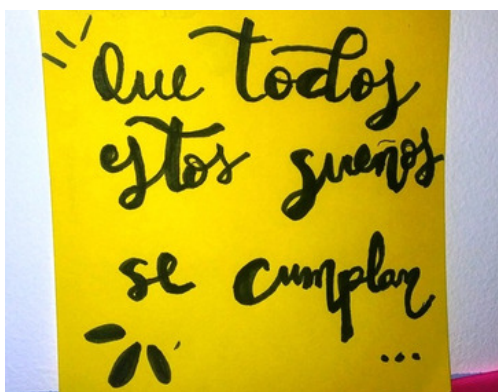 Que todos
estos sueños
se cumplan
...